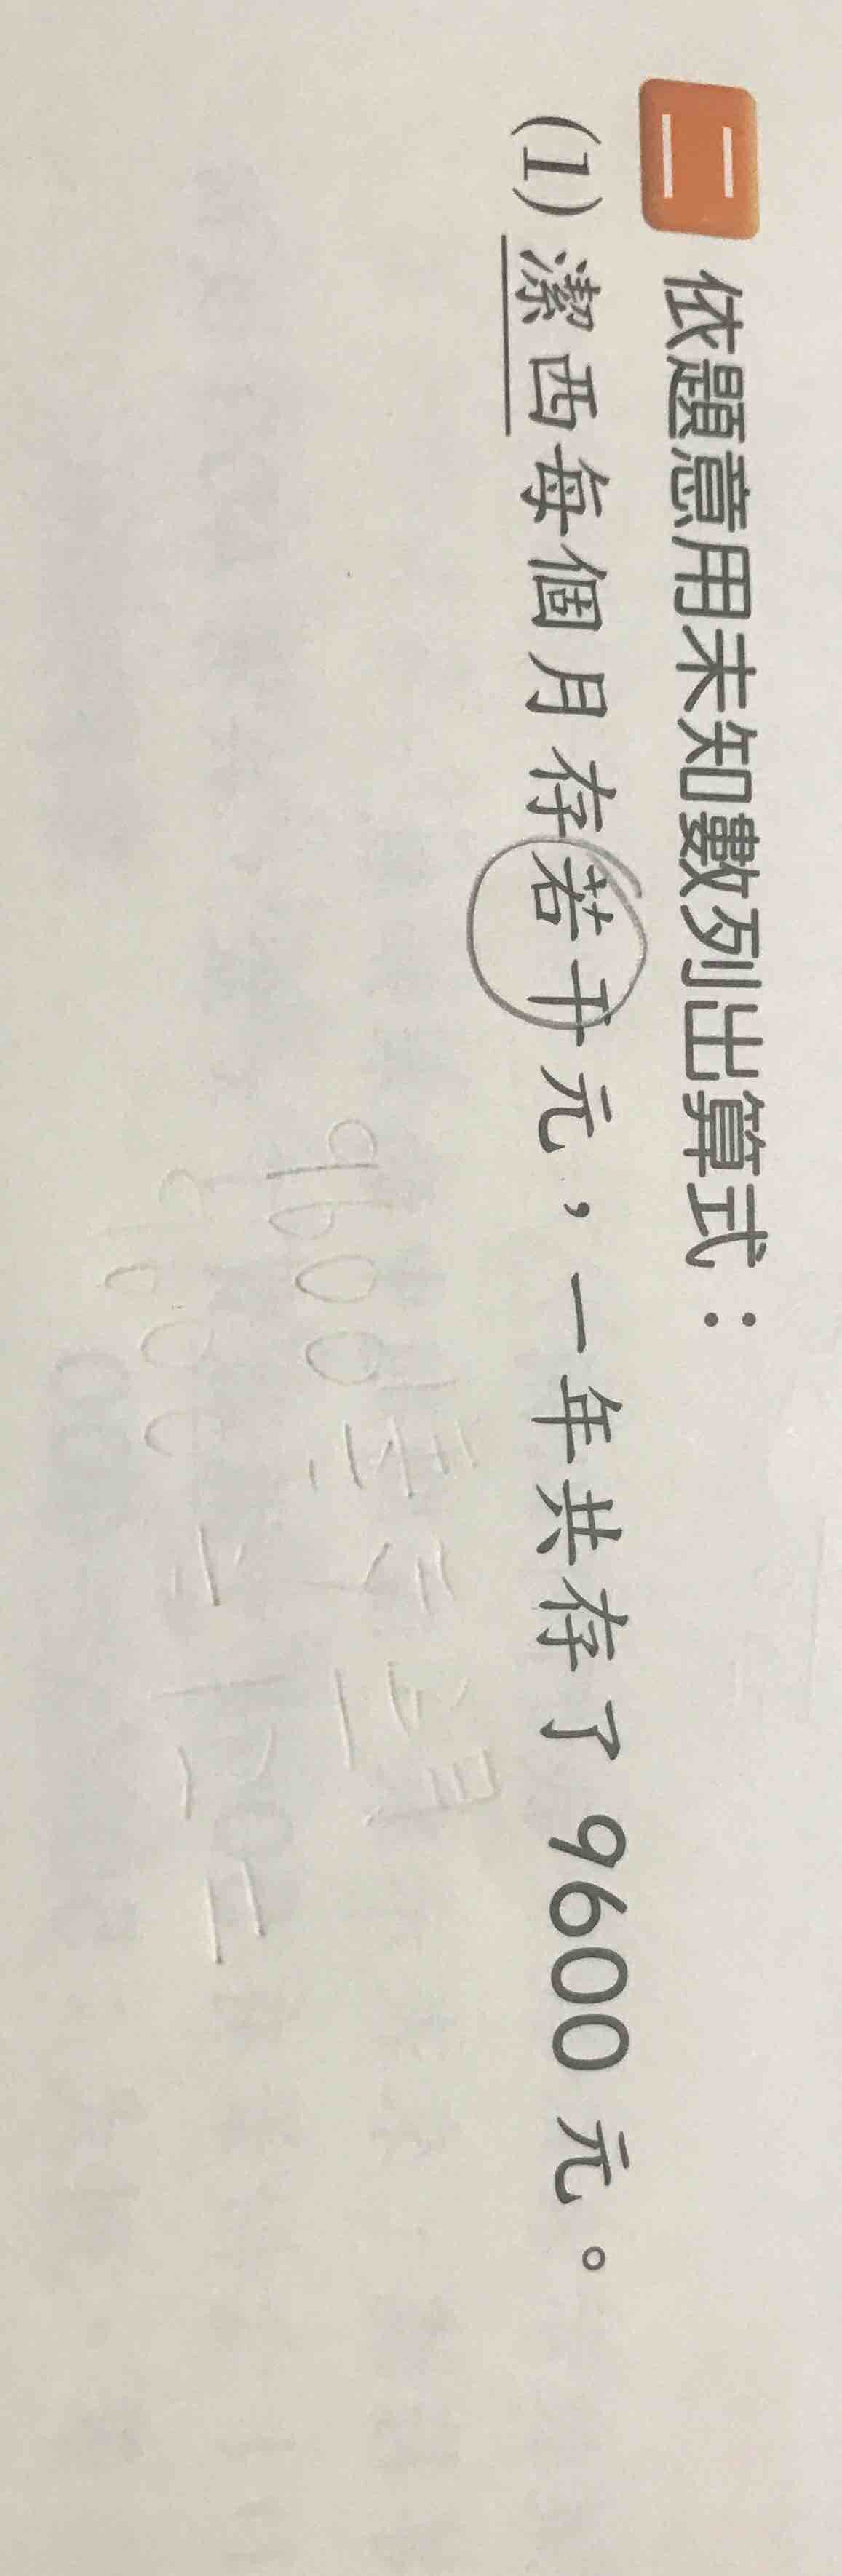 二 依題意用未知數列出算式：
(1) 潔西每個月存若干元，一年共存了 9600 元。
9600
9600 ÷ 12 =